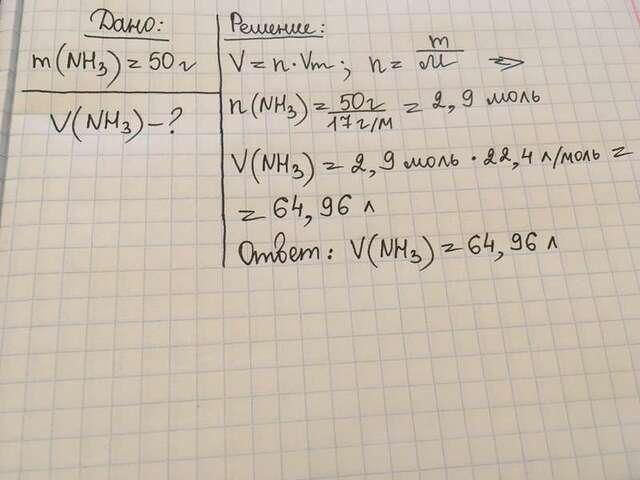 Дано:
m(NH₃) = 50 г
V(NH₃) - ?
Решение:
V = n · Vm; n = m/M ⇒
n(NH₃) = 50г/17г/м = 2,9 моль
V(NH₃) = 2,9 моль · 22,4 л/моль =
= 64,96 л
Ответ: V(NH₃) = 64,96 л